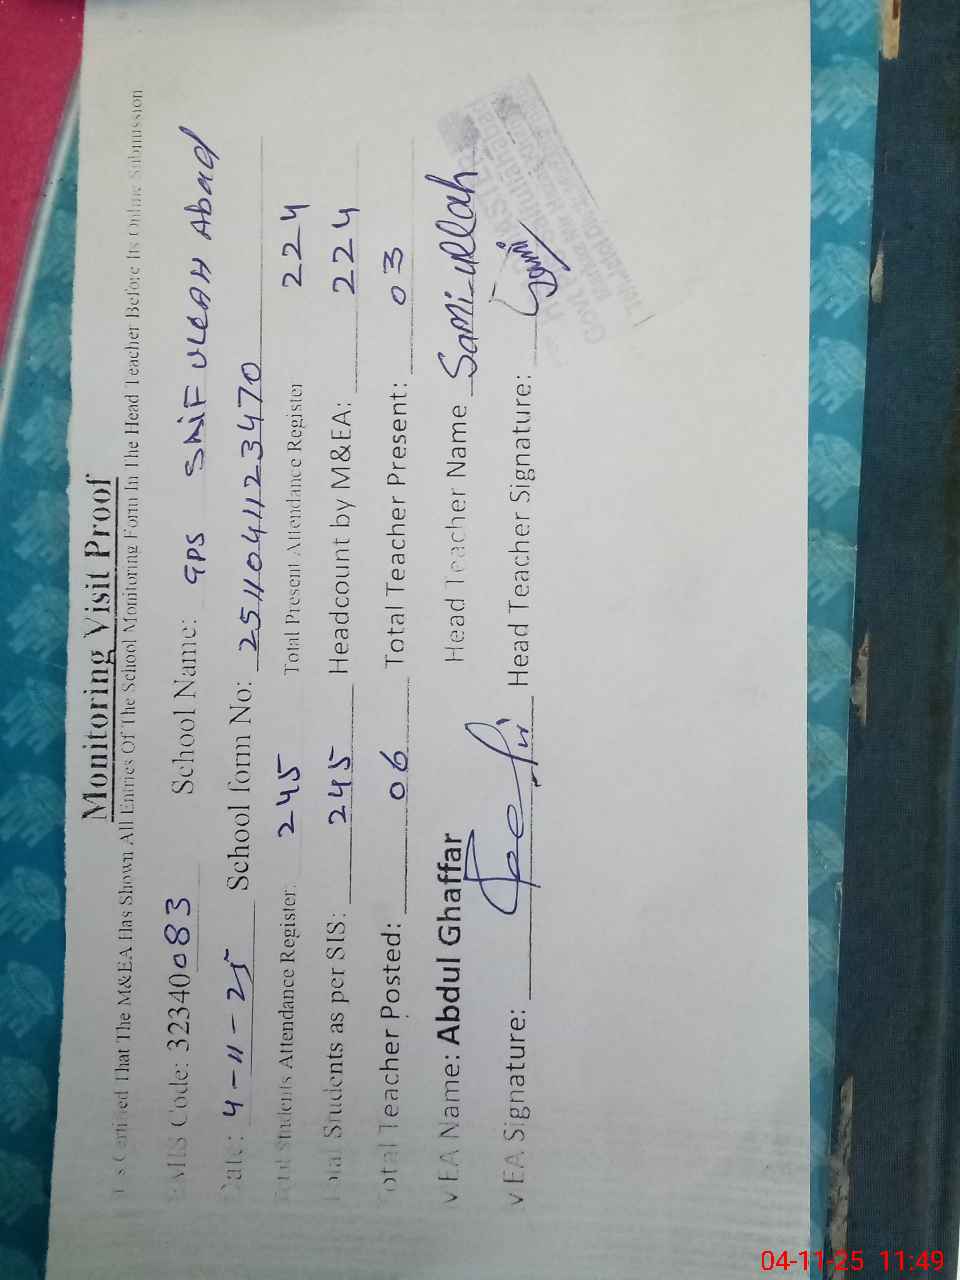 Monitoring Visit Proof
Certified That The M&EA Has Shown All Entries Of The School Monitoring Form In The Head Teacher Before Its Online Submission
EMIS Code: 32340083 School Name: GPS SAIF ULLAH Abad
Date: 4-11-25 School form No: 251104112​3470
Total Students Attendance Register: 245 Total Present Attendance Register 224
Total Students as per SIS: 245 Headcount by M&EA: 224
Total Teacher Posted: 06 Total Teacher Present: 03
EA Name: Abdul Ghaffar Head Teacher Name Sami-ullah
EA Signature: Head Teacher Signature: Sami
04-11-25 11:49